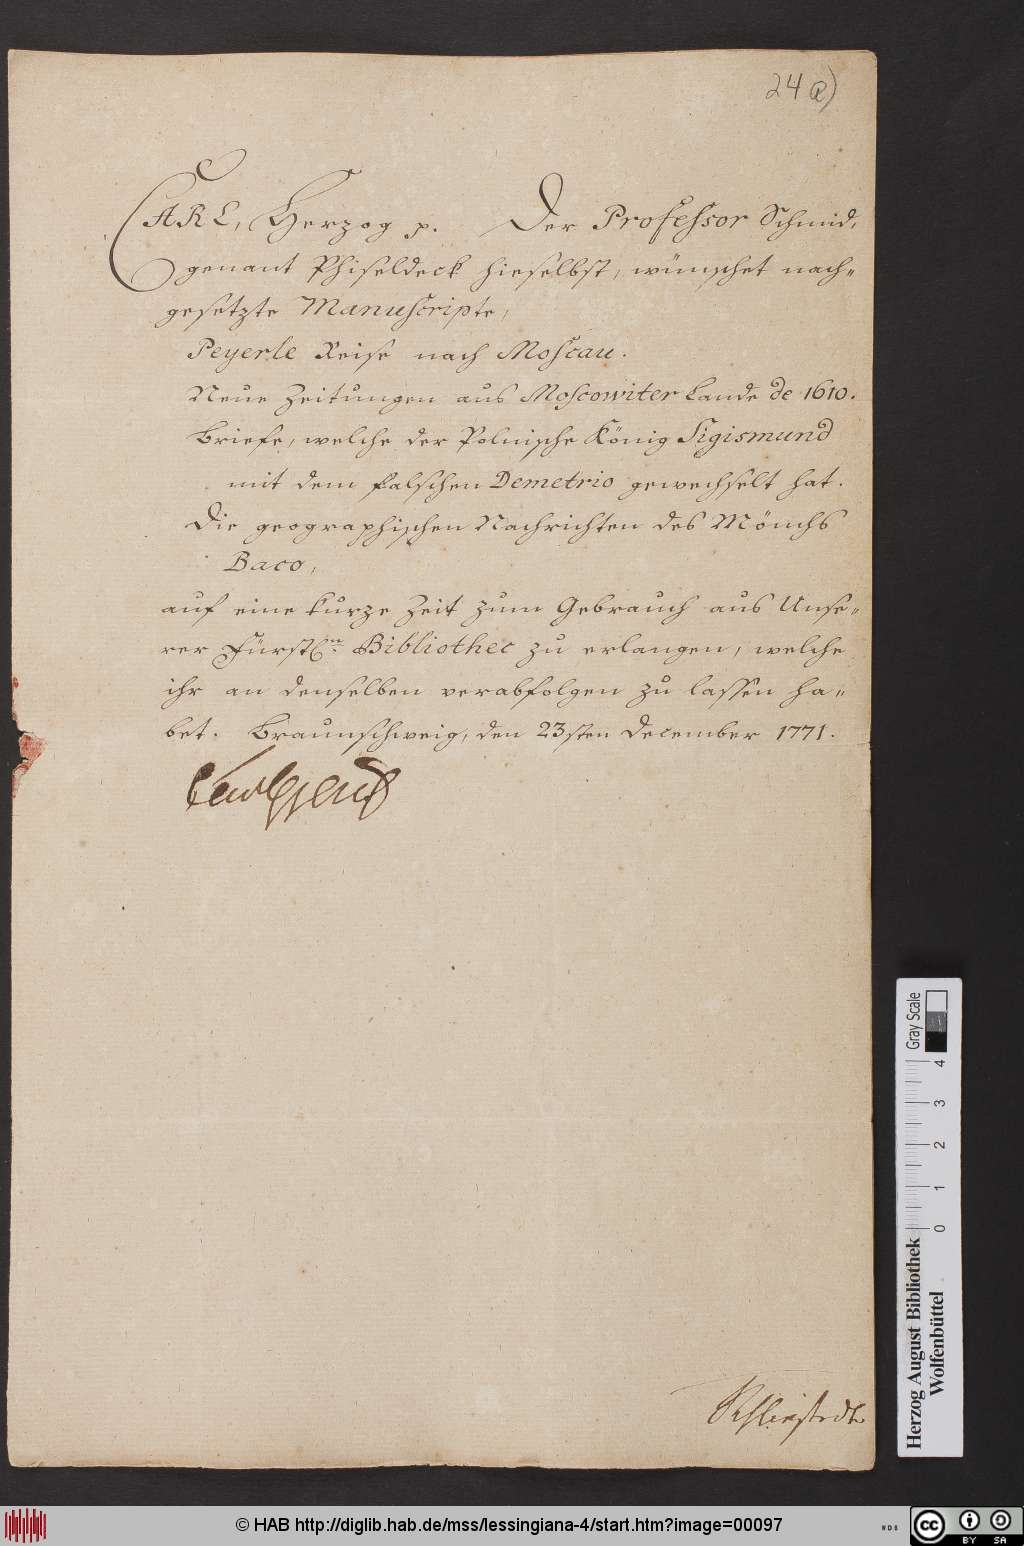 24 a)
CARL, Herzog p. Der Professor Schmid,
genant Phiseldeck hieselbst, wünschet nach=
gesetzte Manuscripte,
Peyerle Reise nach Moscau.
Neue Zeitungen aus Moscowiter Lande de 1610.
Briefe, welche der Polnische König Sigismund
mit dem falschen Demetrio gewechselt hat.
Die geographischen Nachrichten des Mönchs
Baco,
auf eine kurze Zeit zum Gebrauch aus Unse=
rer Fürstln. Bibliothec zu erlangen, welche
ihr an denselben verabfolgen zu lassen ha=
bet. Braunschweig, den 23sten December 1771.
Carl HzBuL
Schliestedt
Gray Scale
0 1 2 3 4
Herzog August Bibliothek
Wolfenbüttel
© HAB http://diglib.hab.de/mss/lessingiana-4/start.htm?image=00097
WDB
cc BY SA